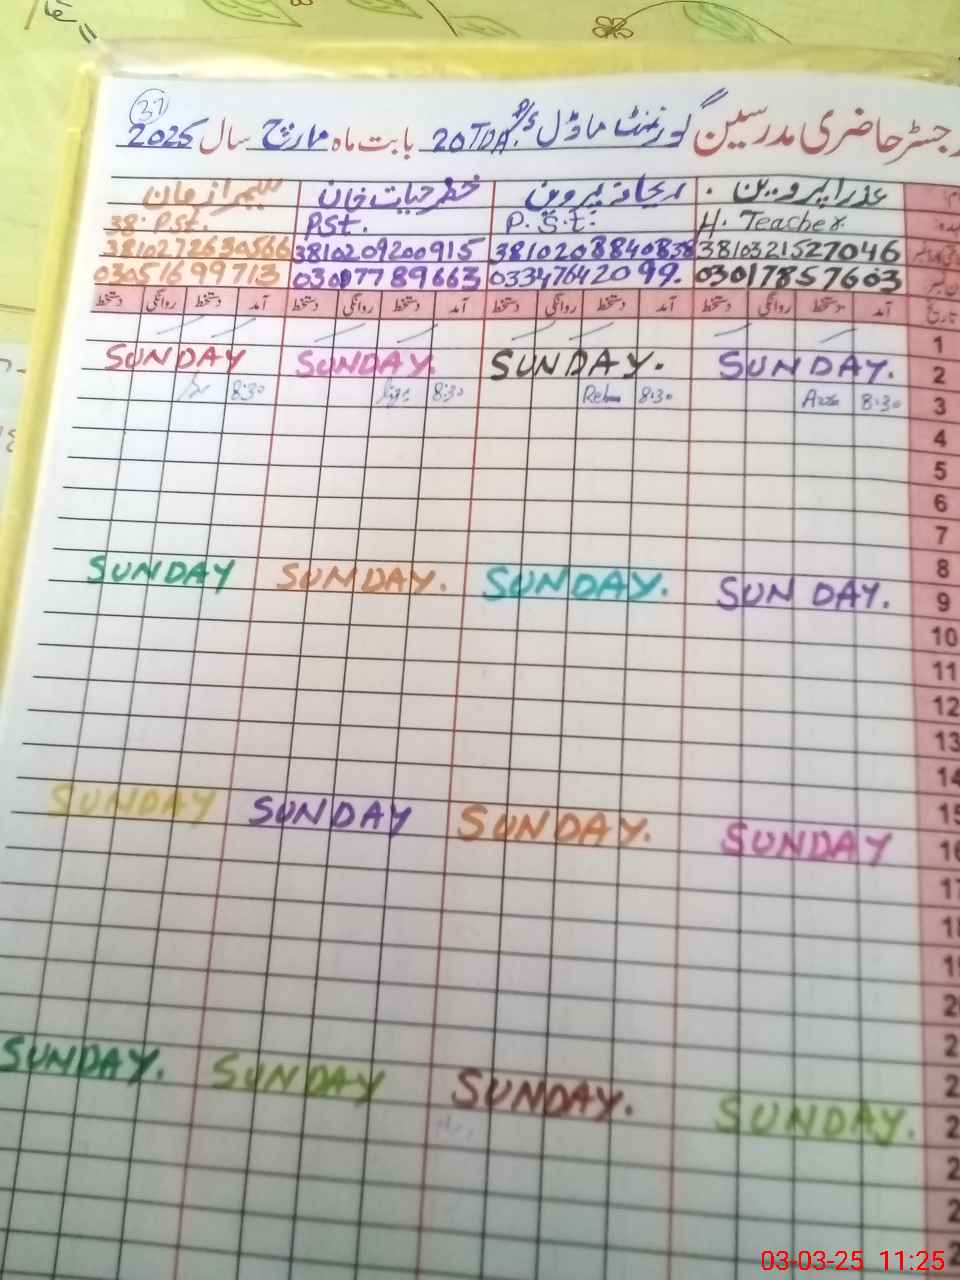 37
رجسٹر حاضری مدرسین گورنمنٹ ماڈل P/S 20TDA بابت ماہ مارچ سال 2025
عذرا پروین ریحانہ پروین خضر حیات خان
H. Teacher P.S.t: PSt. PSt.
3810321527046 3810208840838 3810209200915 3810272630566
03017857603 03347642099. 03077789663 03051699713
تاریخ آمد دستخط روانگی دستخط آمد دستخط روانگی دستخط آمد دستخط روانگی دستخط آمد دستخط روانگی دستخط
1
2 SUNDAY. SUNDAY. SUNDAY. SUNDAY
3 8:30 8:30 8:30 8:30
4
5
6
7
8
9 SUNDAY. SUNDAY. SUNDAY. SUNDAY
10
11
12
13
14
15
16 SUNDAY SUNDAY. SUNDAY SUNDAY
17
18
19
SUNDAY. SUNDAY. SUNDAY SUNDAY.
03-03-25 11:25